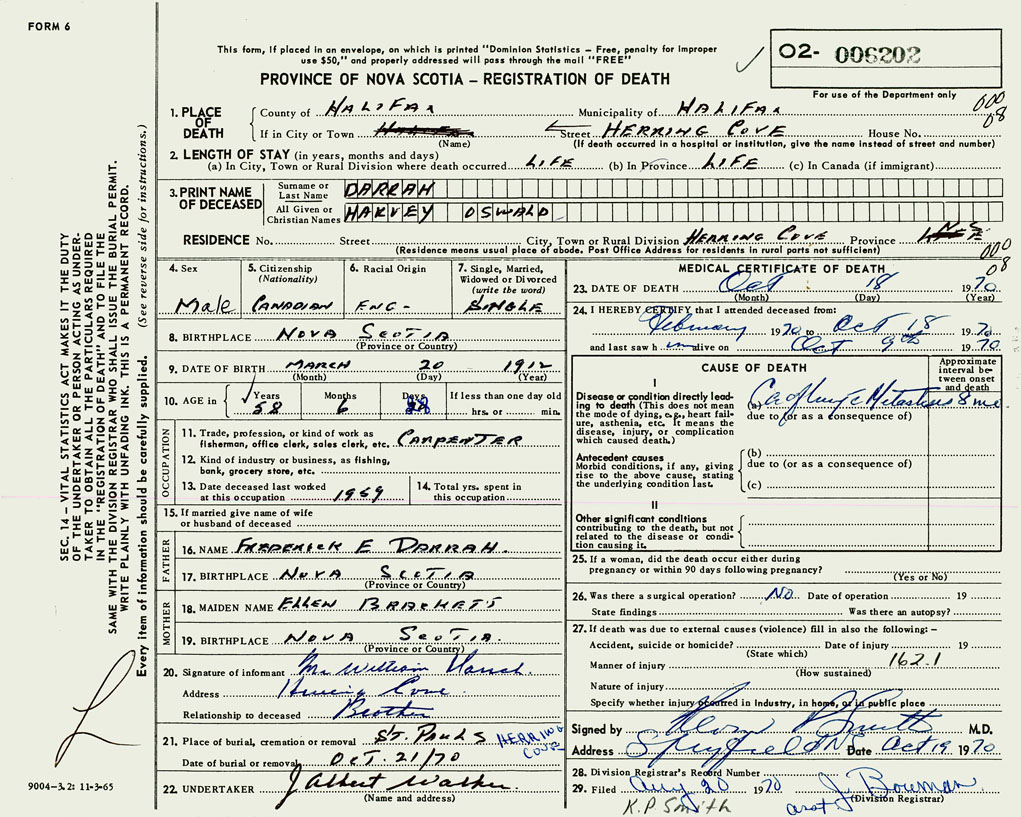 FORM 6
This form, if placed in an envelope, on which is printed "Dominion Statistics – Free, penalty for improper
use $50," and properly addressed will pass through the mail "FREE"
PROVINCE OF NOVA SCOTIA – REGISTRATION OF DEATH
O2- 006202
For use of the Department only
000
08
1. PLACE OF DEATH
County of HALIFAX Municipality of HALIFAX
If in City or Town Street HERRING COVE House No.
(Name) (If death occurred in a hospital or institution, give the name instead of street and number)
2. LENGTH OF STAY (in years, months and days)
(a) In City, Town or Rural Division where death occurred LIFE (b) In Province LIFE (c) In Canada (if immigrant)
3. PRINT NAME OF DECEASED
Surname or Last Name DARRAH
All Given or Christian Names HARVEY OSWALD
RESIDENCE No. Street City, Town or Rural Division HERRING COVE Province N.S.
(Residence means usual place of abode. Post Office Address for residents in rural parts not sufficient)
000
08
4. Sex Male
5. Citizenship (Nationality) CANADIAN
6. Racial Origin ENG-
7. Single, Married, Widowed or Divorced (write the word) SINGLE
8. BIRTHPLACE NOVA SCOTIA
(Province or Country)
9. DATE OF BIRTH MARCH 20 1912
(Month) (Day) (Year)
10. AGE in Years 58 Months 6 Days 28 If less than one day old hrs. or min.
OCCUPATION
11. Trade, profession, or kind of work as
fisherman, office clerk, sales clerk, etc. CARPENTER
12. Kind of industry or business, as fishing,
bank, grocery store, etc.
13. Date deceased last worked at this occupation 1969
14. Total yrs. spent in this occupation
15. If married give name of wife
or husband of deceased
FATHER
16. NAME FREDERICK E DARRAH.
17. BIRTHPLACE NOVA SCOTIA
(Province or Country)
MOTHER
18. MAIDEN NAME ELLEN
19. BIRTHPLACE NOVA SCOTIA.
(Province or Country)
20. Signature of informant Mr William
Address Herring Cove
Relationship to deceased Brother
21. Place of burial, cremation or removal ST. PAULS HERRING COVE
Date of burial or removal OCT. 21/70
22. UNDERTAKER J Albert Walker
(Name and address)
MEDICAL CERTIFICATE OF DEATH
23. DATE OF DEATH Oct 18 1970
(Month) (Day) (Year)
24. I HEREBY CERTIFY that I attended deceased from:
February 1970 to Oct 18 1970
and last saw him alive on Oct 9th 1970
CAUSE OF DEATH
Approximate interval between onset and death
I
Disease or condition directly leading to death (This does not mean the mode of dying, e.g., heart failure, asthenia, etc. It means the disease, injury, or complication which caused death.)
(a) Ca of Lung & Metastasis 8 mo
due to (or as a consequence of)
Antecedent causes
Morbid conditions, if any, giving rise to the above cause, stating the underlying condition last.
(b)
due to (or as a consequence of)
(c)
II
Other significant conditions
contributing to the death, but not related to the disease or condition causing it.
25. If a woman, did the death occur either during
pregnancy or within 90 days following pregnancy?
(Yes or No)
26. Was there a surgical operation? No Date of operation 19
State findings Was there an autopsy?
27. If death was due to external causes (violence) fill in also the following: –
Accident, suicide or homicide? Date of injury 19
(State which)
Manner of injury 162.1
(How sustained)
Nature of injury
Specify whether injury occurred in industry, in home, or in public place
Signed by M.D.
Address Spryfield NS Date Oct 19 1970
28. Division Registrar's Record Number
29. Filed Aug 20 1970 J. Bowman
(Division Registrar)
K.P Smith
SEC. 14 – VITAL STATISTICS ACT MAKES IT THE DUTY
OF THE UNDERTAKER OR PERSON ACTING AS UNDER-
TAKER TO OBTAIN ALL THE PARTICULARS REQUIRED
IN THE "REGISTRATION OF DEATH" AND TO FILE THE
SAME WITH THE DIVISION REGISTRAR WHO SHALL ISSUE THE BURIAL PERMIT.
WRITE PLAINLY WITH UNFADING INK. THIS IS A PERMANENT RECORD.
Every item of information should be carefully supplied. (See reverse side for instructions.)
9004-3.2: 11-3-65